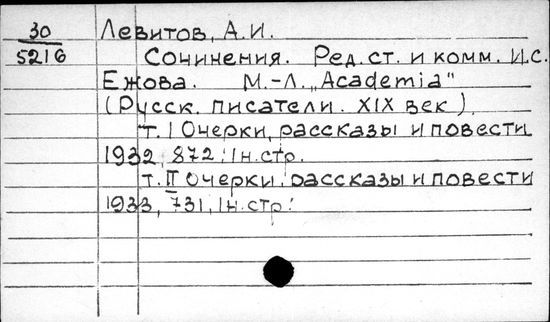 30
5216
Левитов, А.И.
Сочинения. Ред. ст. и комм. И.С.
Ежова. М.-Л. „Academia"
(Русск. писатели. XIX век).
т. I Очерки, рассказы и повести
1932, 872, 1н.стр.
т. II Очерки, рассказы и повести
1933, 731, 1н.стр.